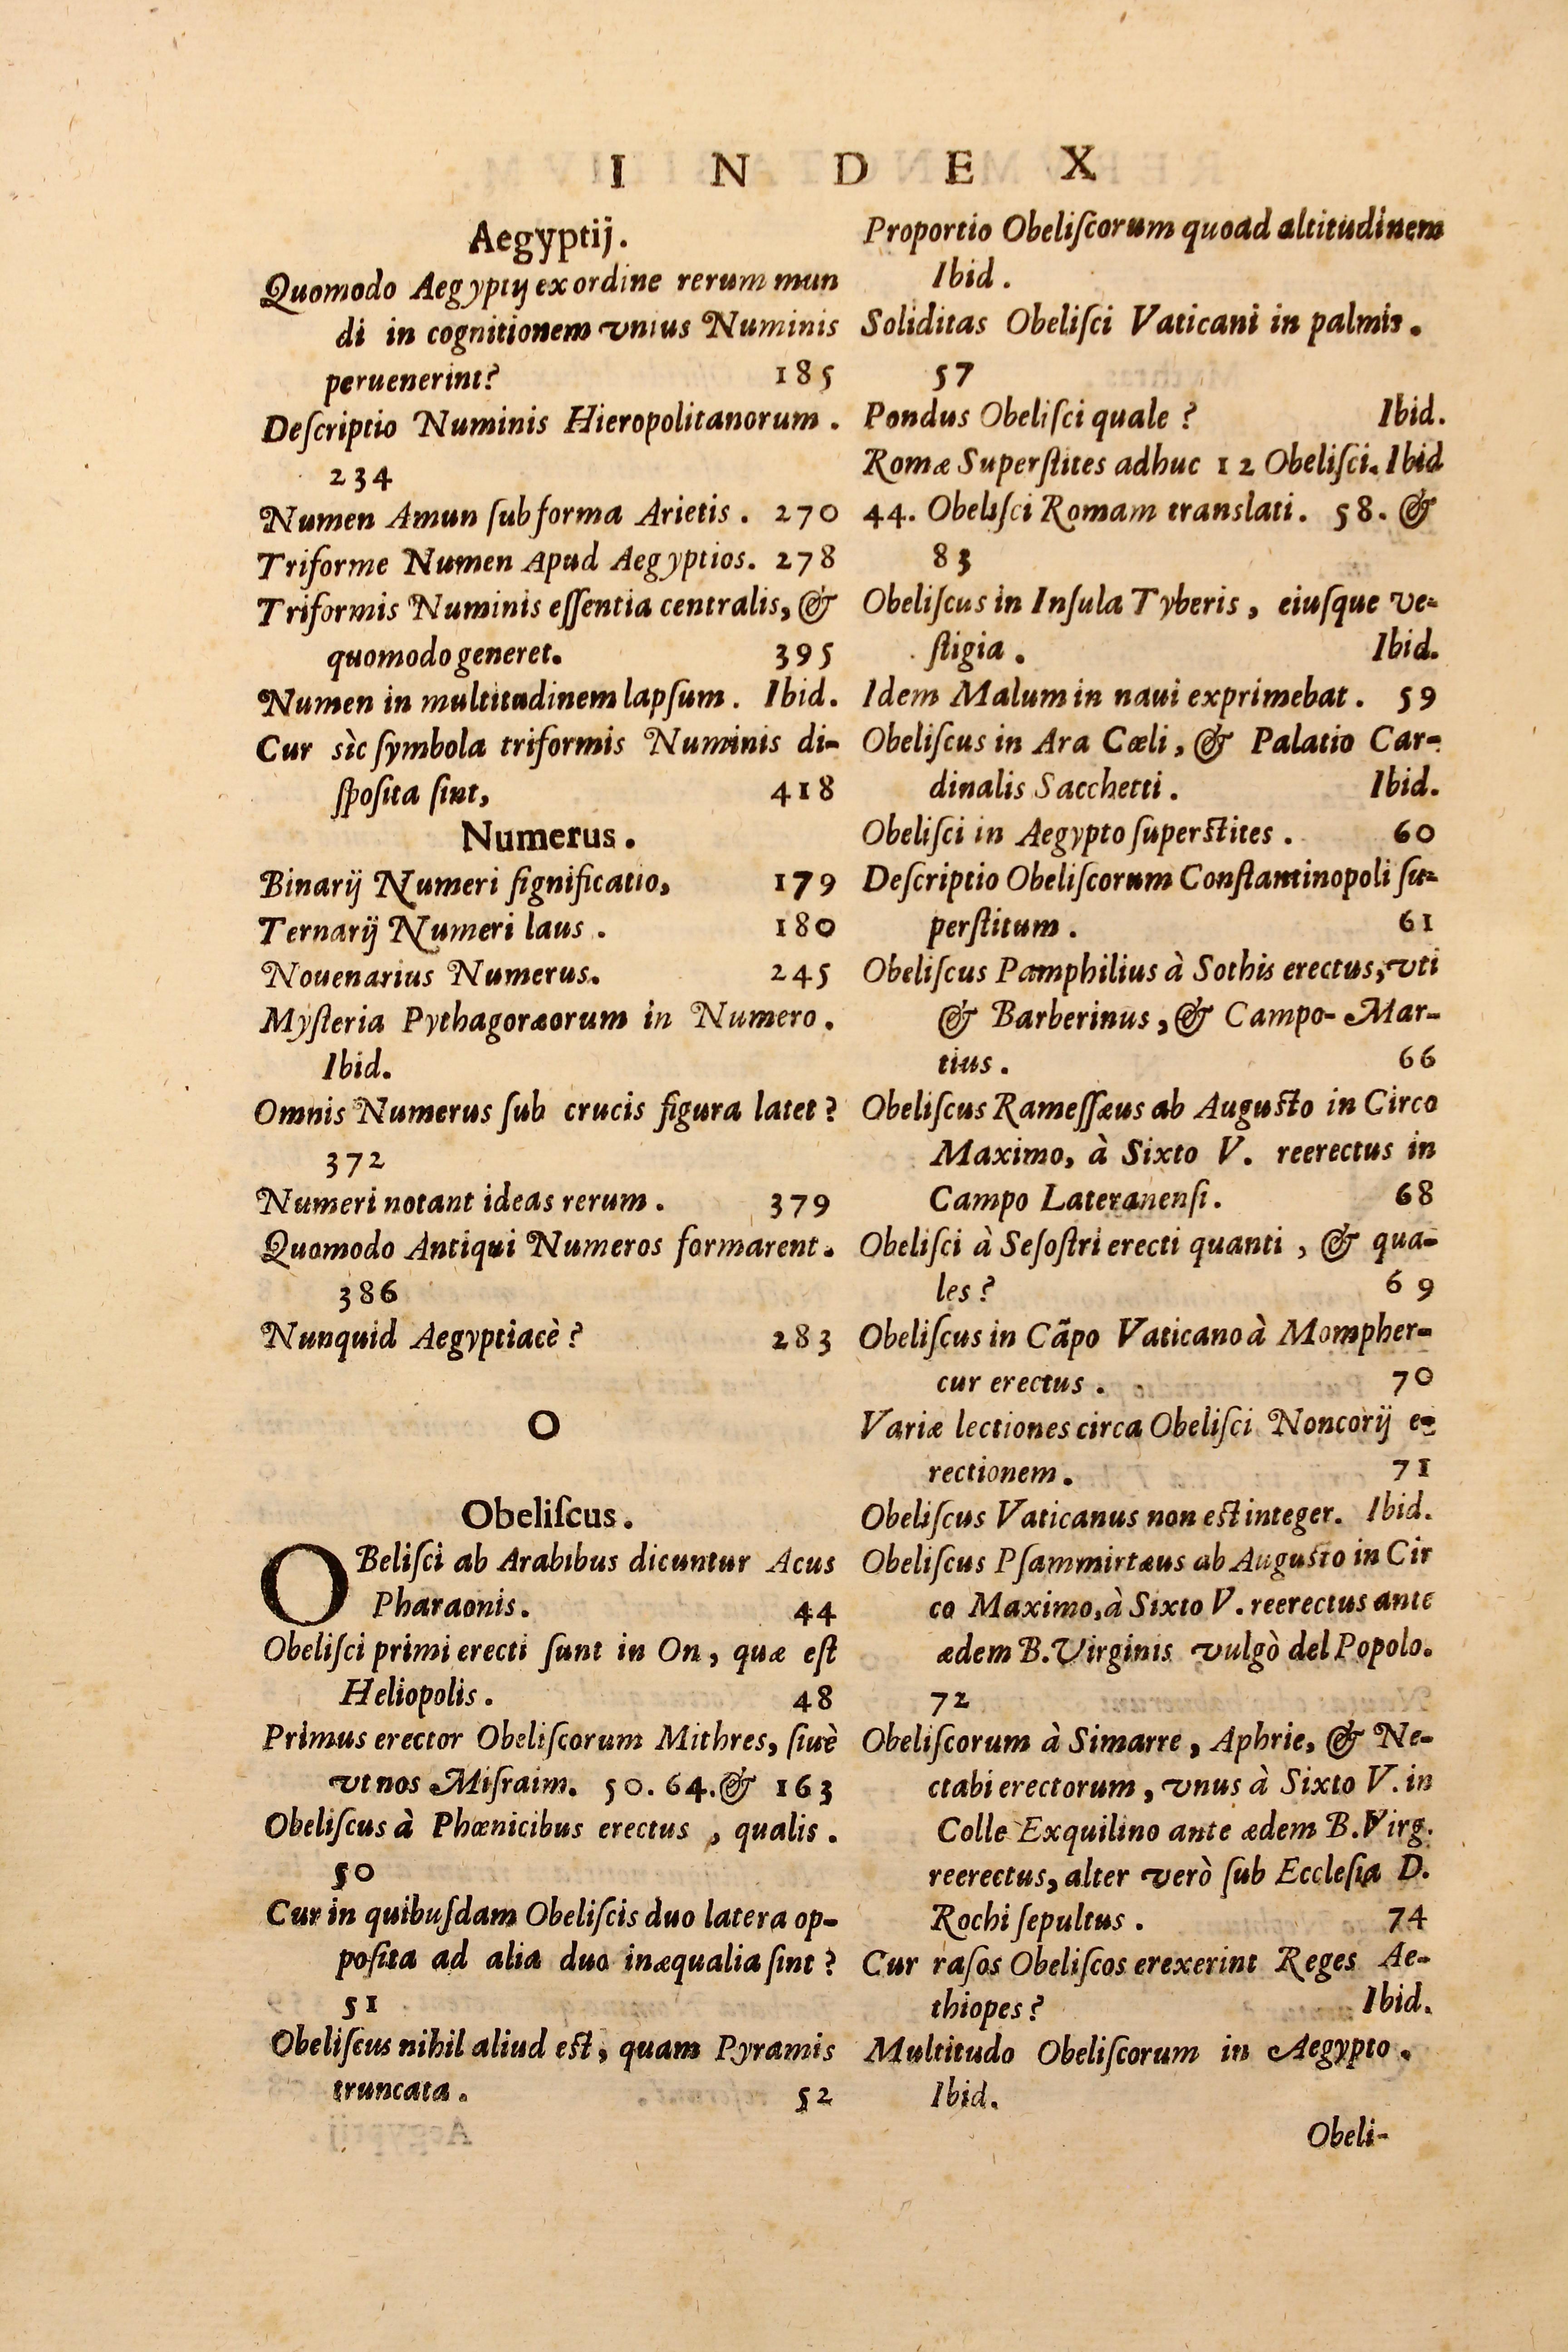 I N D E X
Aegyptij.
Quomodo Aegyptij ex ordine rerum mun
di in cognitionem vnius Numinis
peruenerint? 185
Deſcriptio Numinis Hieropolitanorum.
234
Numen Amun ſub forma Arietis. 270
Triforme Numen Apud Aegyptios. 278
Triformis Numinis eſſentia centralis, &
quomodo generet. 395
Numen in multitudinem lapſum. Ibid.
Cur sìc ſymbola triformis Numinis di-
ſpoſita ſint, 418
Numerus.
Binarij Numeri ſignificatio, 179
Ternarij Numeri laus. 180
Nouenarius Numerus. 245
Myſteria Pythagoræorum in Numero.
Ibid.
Omnis Numerus ſub crucis figura latet?
372
Numeri notant ideas rerum. 379
Quomodo Antiqui Numeros formarent.
386
Nunquid Aegyptiacè? 283
O
Obeliſcus.
OBeliſci ab Arabibus dicuntur Acus
Pharaonis. 44
Obeliſci primi erecti ſunt in On, quæ eſt
Heliopolis. 48
Primus erector Obeliſcorum Mithres, ſiuè
vt nos Miſraim. 50. 64. & 163
Obeliſcus à Phœnicibus erectus, qualis.
50
Cur in quibuſdam Obeliſcis duo latera op-
poſita ad alia duo inæqualia ſint?
51
Obeliſcus nihil aliud eſt, quam Pyramis
truncata. 52
Proportio Obeliſcorum quoad altitudinem
Ibid.
Soliditas Obeliſci Vaticani in palmis.
57
Pondus Obeliſci quale? Ibid.
Romæ Superſtites adhuc 12 Obeliſci. Ibid
44. Obeliſci Romam translati. 58. &
83
Obeliſcus in Inſula Tyberis, eiuſque ve-
ſtigia. Ibid.
Idem Malum in naui exprimebat. 59
Obeliſcus in Ara Cœli, & Palatio Car-
dinalis Sacchetti. Ibid.
Obeliſci in Aegypto ſuperſtites. 60
Deſcriptio Obeliſcorum Conſtantinopoli ſu-
perſtitum. 61
Obeliſcus Pamphilius à Sothis erectus, vti
& Barberinus, & Campo-Mar-
tius. 66
Obeliſcus Rameſſæus ab Auguſto in Circo
Maximo, à Sixto V. reerectus in
Campo Lateranenſi. 68
Obeliſci à Seſoſtri erecti quanti, & qua-
les? 69
Obeliſcus in Cãpo Vaticano à Mompher-
cur erectus. 70
Variæ lectiones circa Obeliſci Noncorij e-
rectionem. 71
Obeliſcus Vaticanus non eſt integer. Ibid.
Obeliſcus Pſammirtæus ab Auguſto in Cir
co Maximo, à Sixto V. reerectus ante
ædem B. Virginis vulgò del Popolo.
72
Obeliſcorum à Simarre, Aphrie, & Ne-
ctabi erectorum, vnus à Sixto V. in
Colle Exquilino ante ædem B. Virg.
reerectus, alter verò ſub Eccleſia D.
Rochi ſepultus. 74
Cur raſos Obeliſcos erexerint Reges Ae-
thiopes? Ibid.
Multitudo Obeliſcorum in Aegypto.
Ibid.
Obeli-